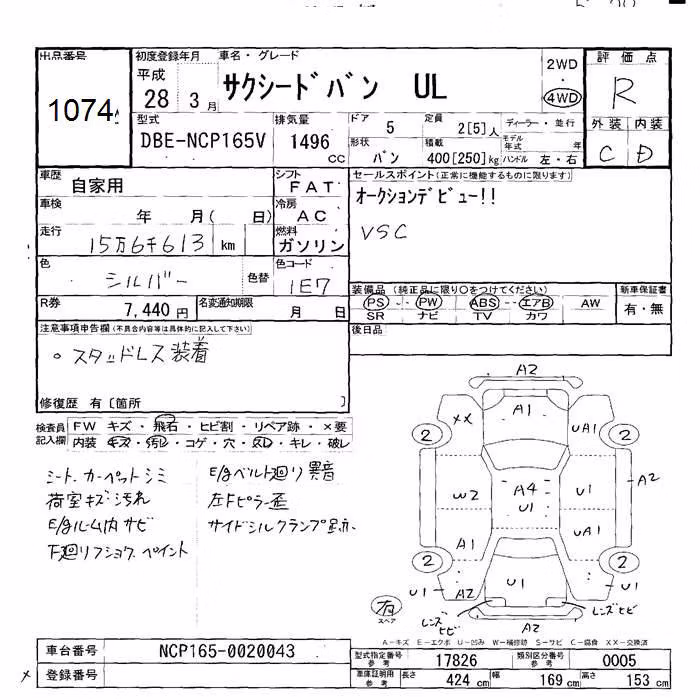 出品番号
1074
初度登録年月
平成
28 3月
車名・グレード
サクシードバン UL
2WD
・
4WD
評価点
R
外装 内装
C D
型式
DBE-NCP165V
排気量
1496 cc
ドア
5
定員
2[5]人
ディーラー・並行
形状
バン
積載
400[250]kg
モデル年式 年
ハンドル 左・右
車歴
自家用
シフト
FAT
車検
年 月( 日)
冷房
AC
走行
15万6千613 km
燃料
ガソリン
色
シルバー
色替
色コード
1E7
R券
7,440円
名変通知期限
月 日
セールスポイント(正常に機能するものに限ります)
オークションデビュー!!
VSC
装備品 (純正品に限り○をつけてください)
PS・・PW ABS・・エアB AW
SR ナビ TV カワ
新車保証書
有・無
後日品
注意事項申告欄(不具合内容等は具体的に記入して下さい)
○スタッドレス装着
修復歴 有〔箇所 〕
検査員記入欄
FW キズ・飛石・ヒビ割・リペア跡・×要
内装 キズ・汚レ・コゲ・穴・スレ・キレ・破レ
シート、カーペットシミ
荷室キズ汚れ
E/gルーム内サビ
下廻リフショク、ペイント
E/gベルト廻リ異音
左Fピラー歪
サイドシルクランプ跡
A2
XX A1 UA1
2 2
W2 A4 U1 U1 A2
A1 UA1
2 2
U1 A2 U1 U1
レンズヒビ A2 レンズヒビ
有
スペア
A-キズ E-エクボ U-凹み W-補修跡 S-サビ C-腐食 XX-交換済
車台番号
NCP165-0020043
登録番号
型式指定番号 参考
17826
類別区分番号 参考
0005
車庫証明用 参考
長さ 424 cm 幅 169 cm 高さ 153 cm